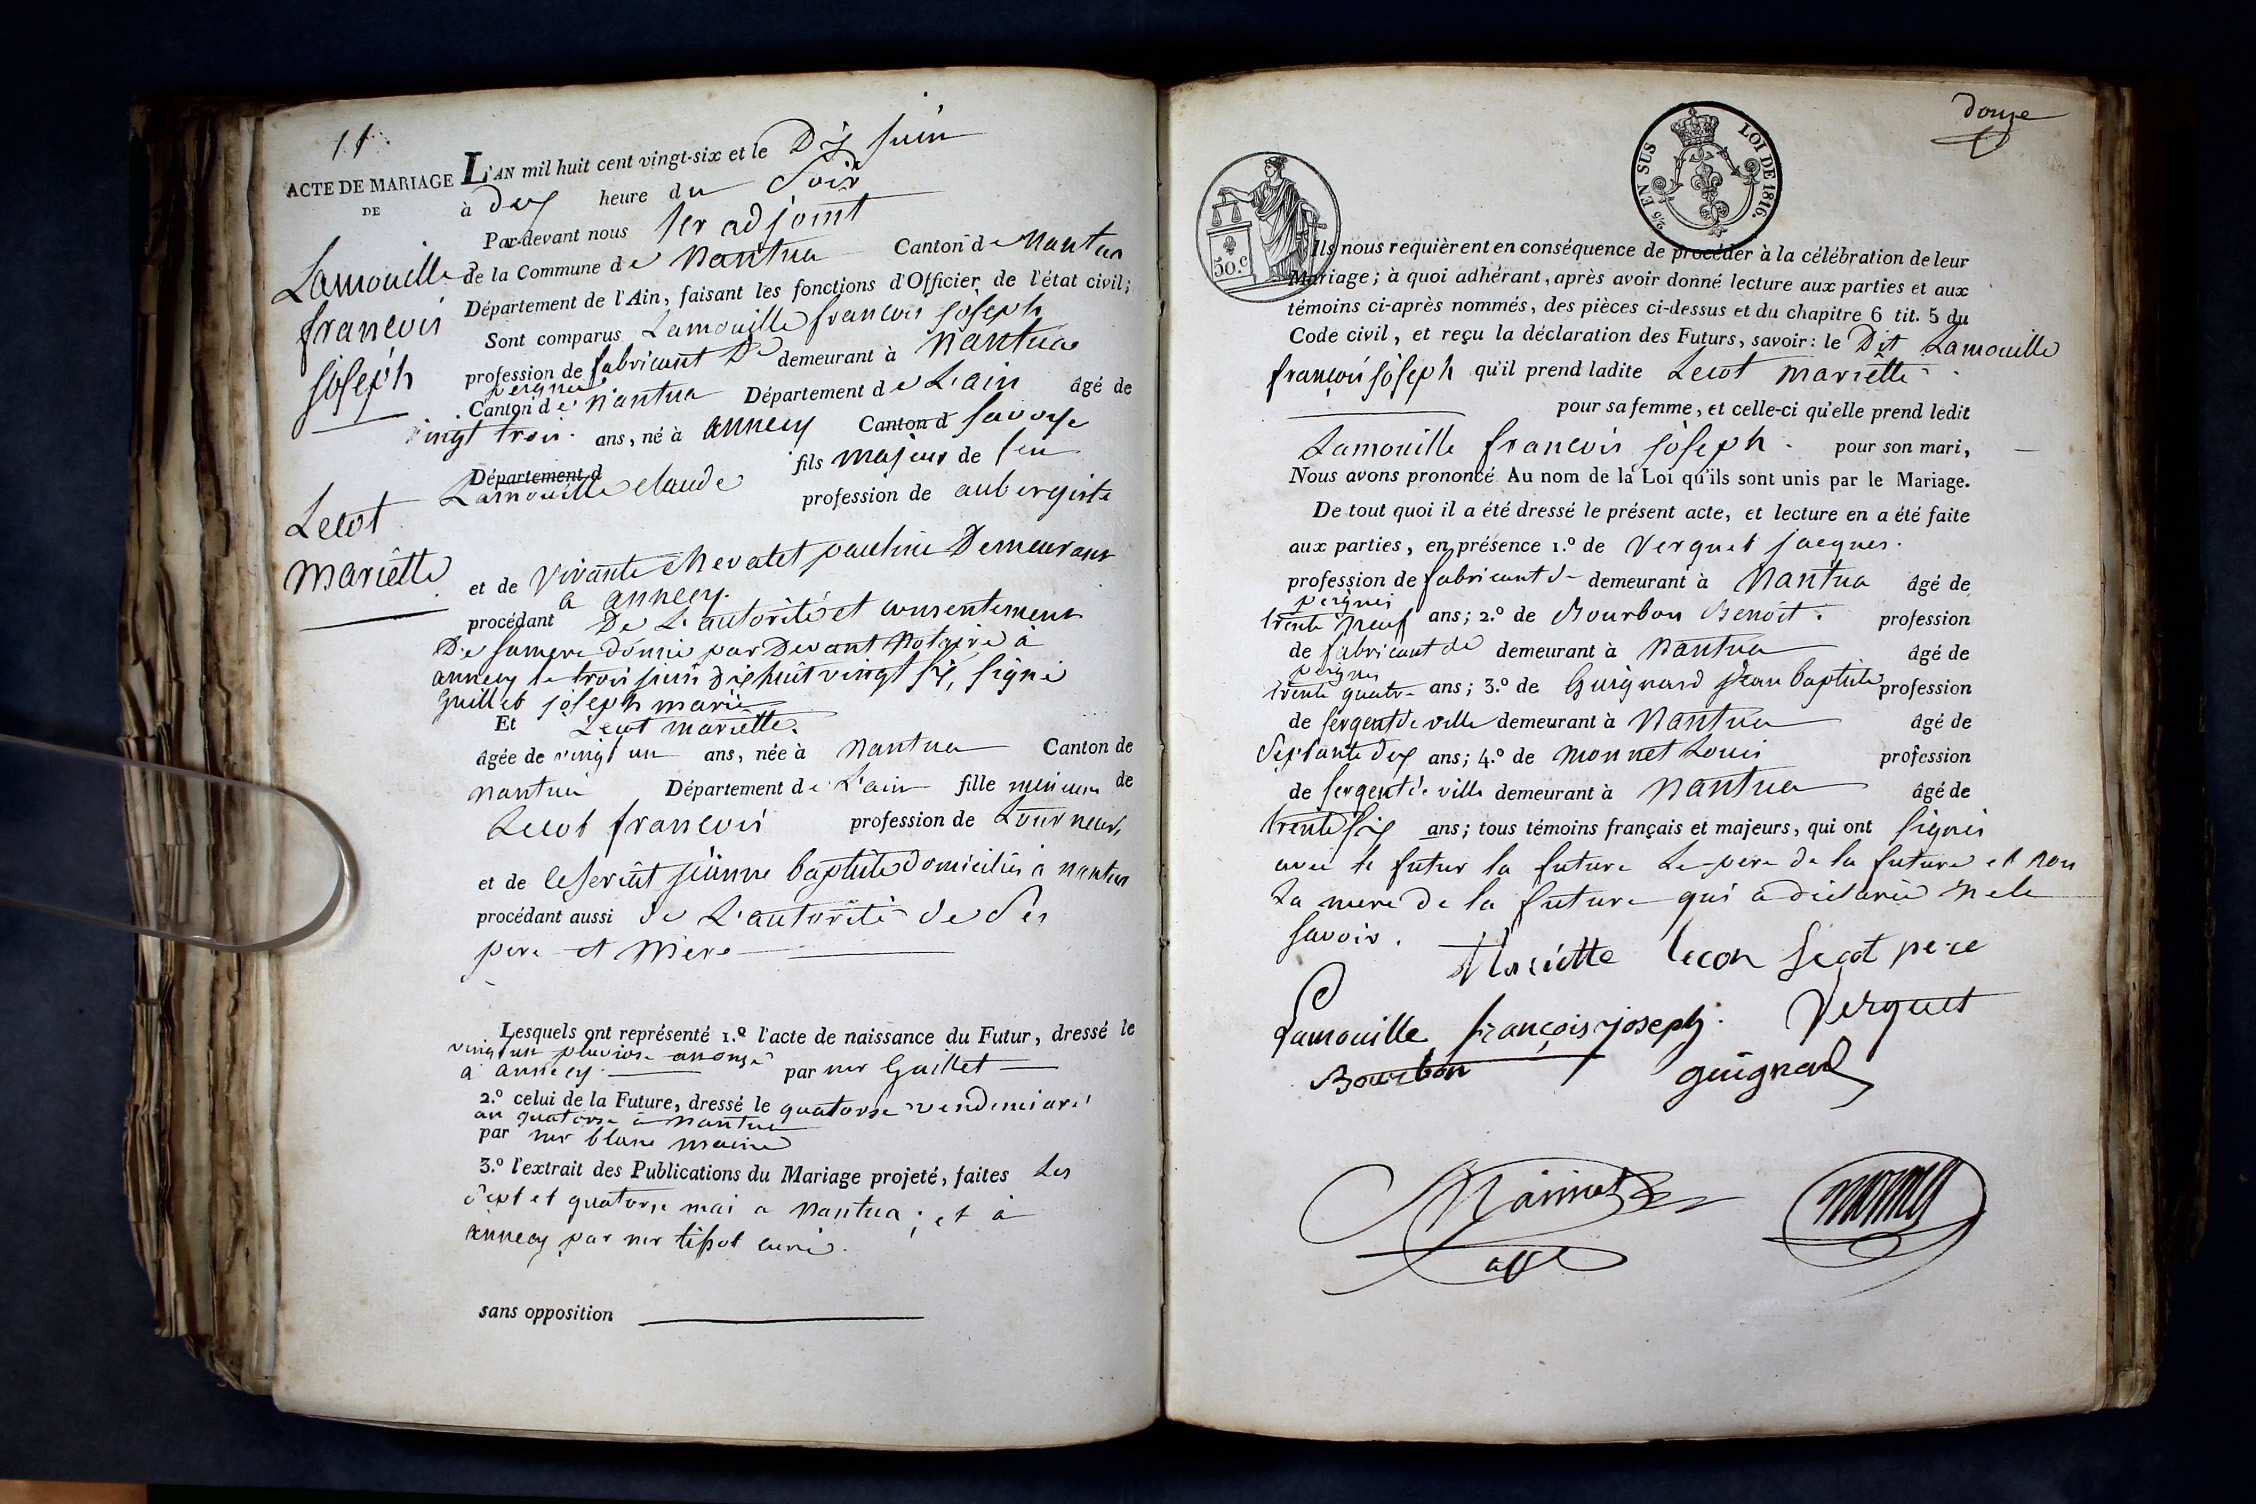 11
ACTE DE MARIAGE
DE
Lamouille
francois
joseph
Lecot
Mariette
L'AN mil huit cent vingt-six et le Dix juin
à deux heure du Soir
Par-devant nous 1er adjoint
de la Commune de Nantua Canton de Nantua
Département de l'Ain, faisant les fonctions d'Officier de l'état civil;
Sont comparus Lamouille francois joseph
profession de fabricant De demeurant à Nantua
peignes
Canton de Nantua Département de L'ain âgé de
vingt trois ans, né à annecy Canton d Savoye
Département d fils majeur de feu
Lamouille claude profession de aubergiste
et de vivante Chevalet pauline Demeurant
a annecy.
procédant De L'autorité et consentement
De sa mere donné par Devant Notaire à
annecy le trois juin dix huit vingt six, signé
Guillet joseph marie
Et Lecot mariette.
âgée de vingt un ans, née à Nantua Canton de
Nantua Département de L'ain fille mineure de
Lecot francois profession de Tourneur
et de jeanne baptiste domiciliés à nantua
procédant aussi de L'autorité de Ses
pere et Mere
Lesquels ont représenté 1.º l'acte de naissance du Futur, dressé le
vingt un pluviose an onze
a annecy par mr Guillet
2.º celui de la Future, dressé le quatorse vendemiare
an quatorse à Nantua
par mr blanc maire
3.º l'extrait des Publications du Mariage projeté, faites Les
sept et quatorse mai a Nantua; et à
annecy par mr tissot curé.
sans opposition
douze
5% EN SUS LOI DE 1816.
50.c
Ils nous requièrent en conséquence de procéder à la célébration de leur
Mariage; à quoi adhérant, après avoir donné lecture aux parties et aux
témoins ci-après nommés, des pièces ci-dessus et du chapitre 6 tit. 5 du
Code civil, et reçu la déclaration des Futurs, savoir: le Dit Lamouille
françois joseph qu'il prend ladite Lecot mariette
pour sa femme, et celle-ci qu'elle prend ledit
Lamouille francois joseph pour son mari,
Nous avons prononcé Au nom de la Loi qu'ils sont unis par le Mariage.
De tout quoi il a été dressé le présent acte, et lecture en a été faite
aux parties, en présence 1.º de Verguet jacques.
profession de fabricant de demeurant à Nantua âgé de
peignes
trente neuf ans; 2.º de Bourbon Benoit. profession
de fabricant de demeurant à Nantua âgé de
peignes
trente quatre ans; 3.º de Guignard jean baptiste profession
de sergent de ville demeurant à Nantua âgé de
Septante deux ans; 4.º de Monnet Louis profession
de sergent de ville demeurant à Nantua âgé de
trente six ans; tous témoins français et majeurs, qui ont Signés
avec le futur la future Le pere de la future et non
La mere de la future qui a déclarée ne le
Savoir.
Mariette lecon Lecot pere
Lamouille françois joseph. Verguet
Bourbon guignard
adj
monnet